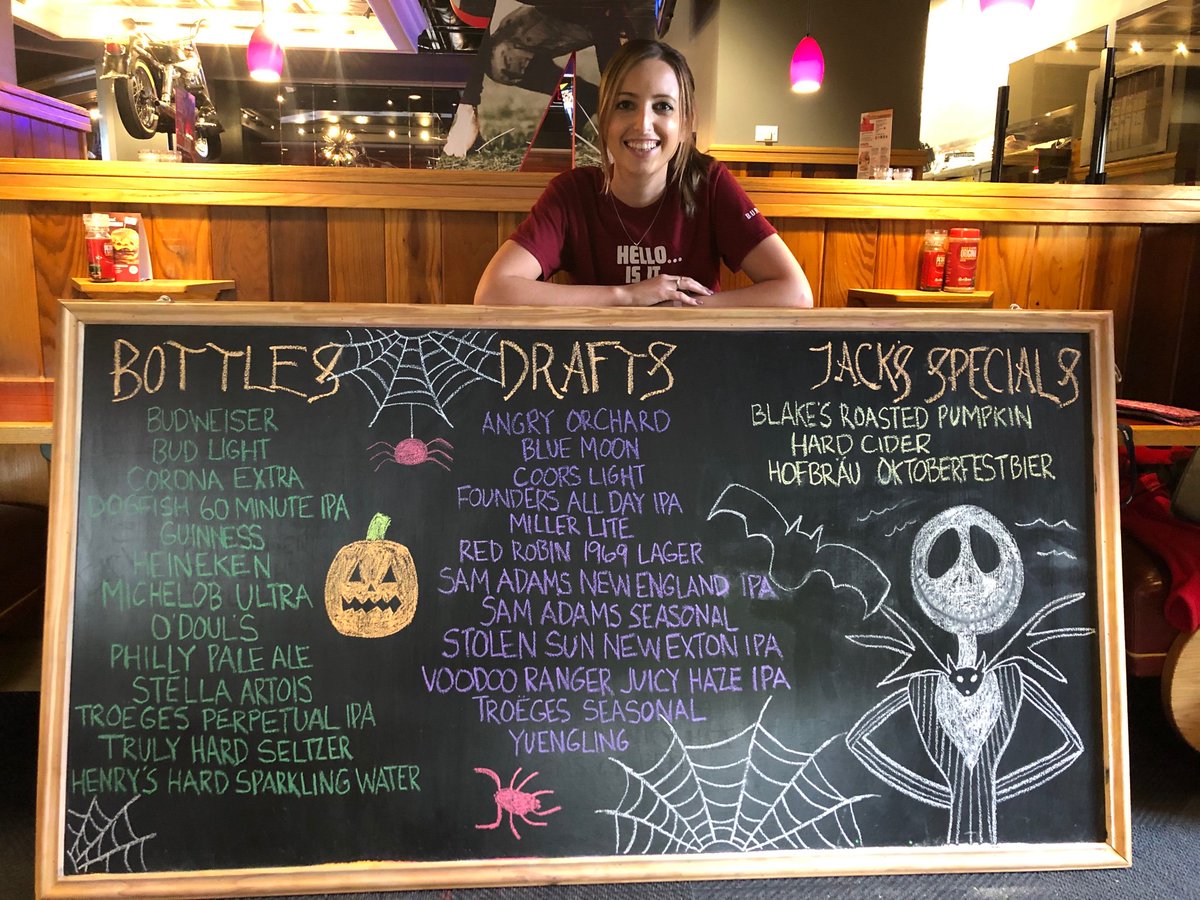 HELLO...
IS IT
BOTTLES
BUDWEISER
BUD LIGHT
CORONA EXTRA
DOGFISH 60 MINUTE IPA
GUINNESS
HEINEKEN
MICHELOB ULTRA
O'DOUL'S
PHILLY PALE ALE
STELLA ARTOIS
TROEGES PERPETUAL IPA
TRULY HARD SELTZER
HENRY'S HARD SPARKLING WATER
DRAFTS
ANGRY ORCHARD
BLUE MOON
COORS LIGHT
FOUNDERS ALL DAY IPA
MILLER LITE
RED ROBIN 1969 LAGER
SAM ADAMS NEW ENGLAND IPA
SAM ADAMS SEASONAL
STOLEN SUN NEW EXTON IPA
VOODOO RANGER JUICY HAZE IPA
TROËGES SEASONAL
YUENGLING
JACK'S SPECIALS
BLAKE'S ROASTED PUMPKIN
HARD CIDER
HOFBRÄU OKTOBERFESTBIER